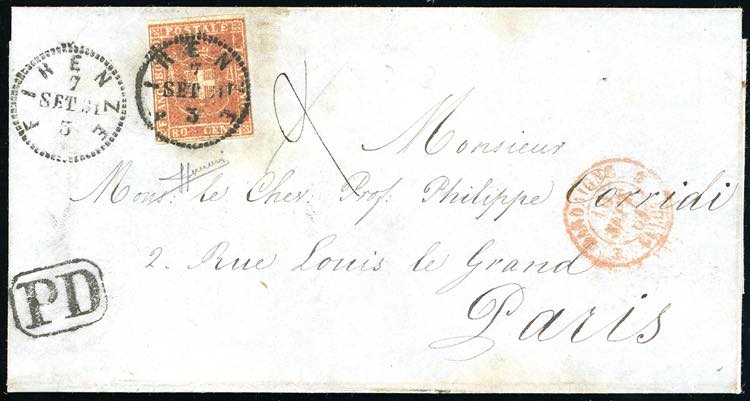 FIRENZE
7
SET 
3
FRANCOBOLLO
POSTALE
80 CENT
FIRENZE
7
SET 
3
Monsieur
Mons. le Chev. Prof. Philippe Corridi
2. Rue Louis le Grand
Paris
PD